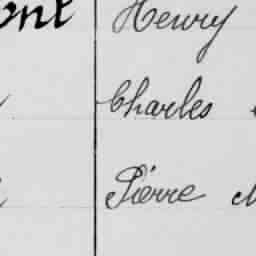 Henry
Charles
Pierre